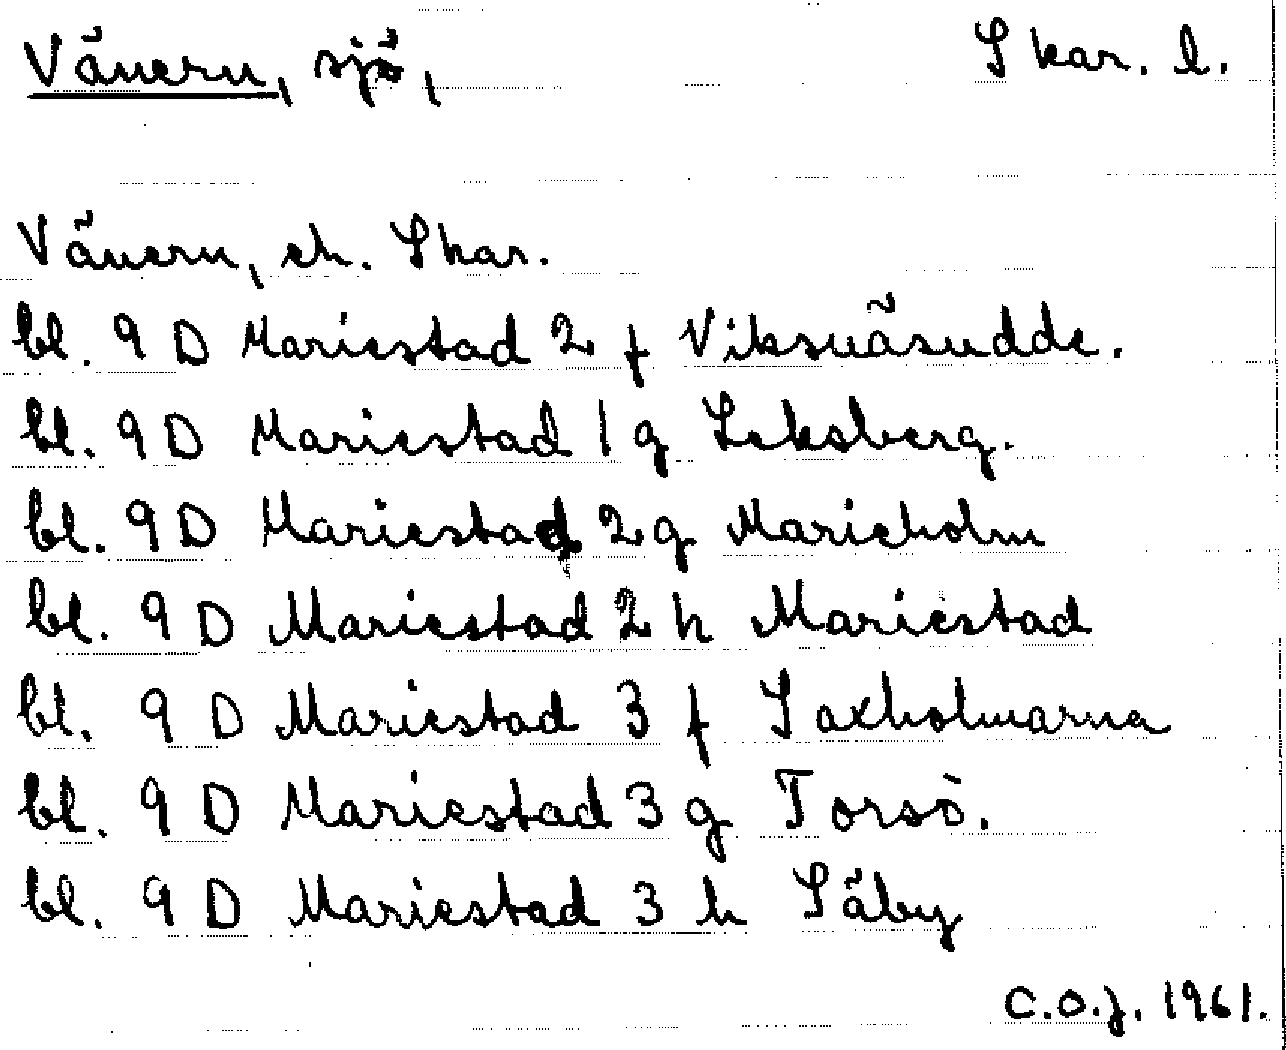 Vänern, sjö, Skar. l.
Vänern, ek. Skar.
bl. 9 D Mariestad 2 f Viksnäsudde.
bl. 9 D Mariestad 1 g Leksberg.
bl. 9 D Mariestad 2 g Marieholm
bl. 9 D Mariestad 2 h Mariestad
bl. 9 D Mariestad 3 f Saxholmarna
bl. 9 D Mariestad 3 g Torsö.
bl. 9 D Mariestad 3 h Säby
C.O.J. 1961.